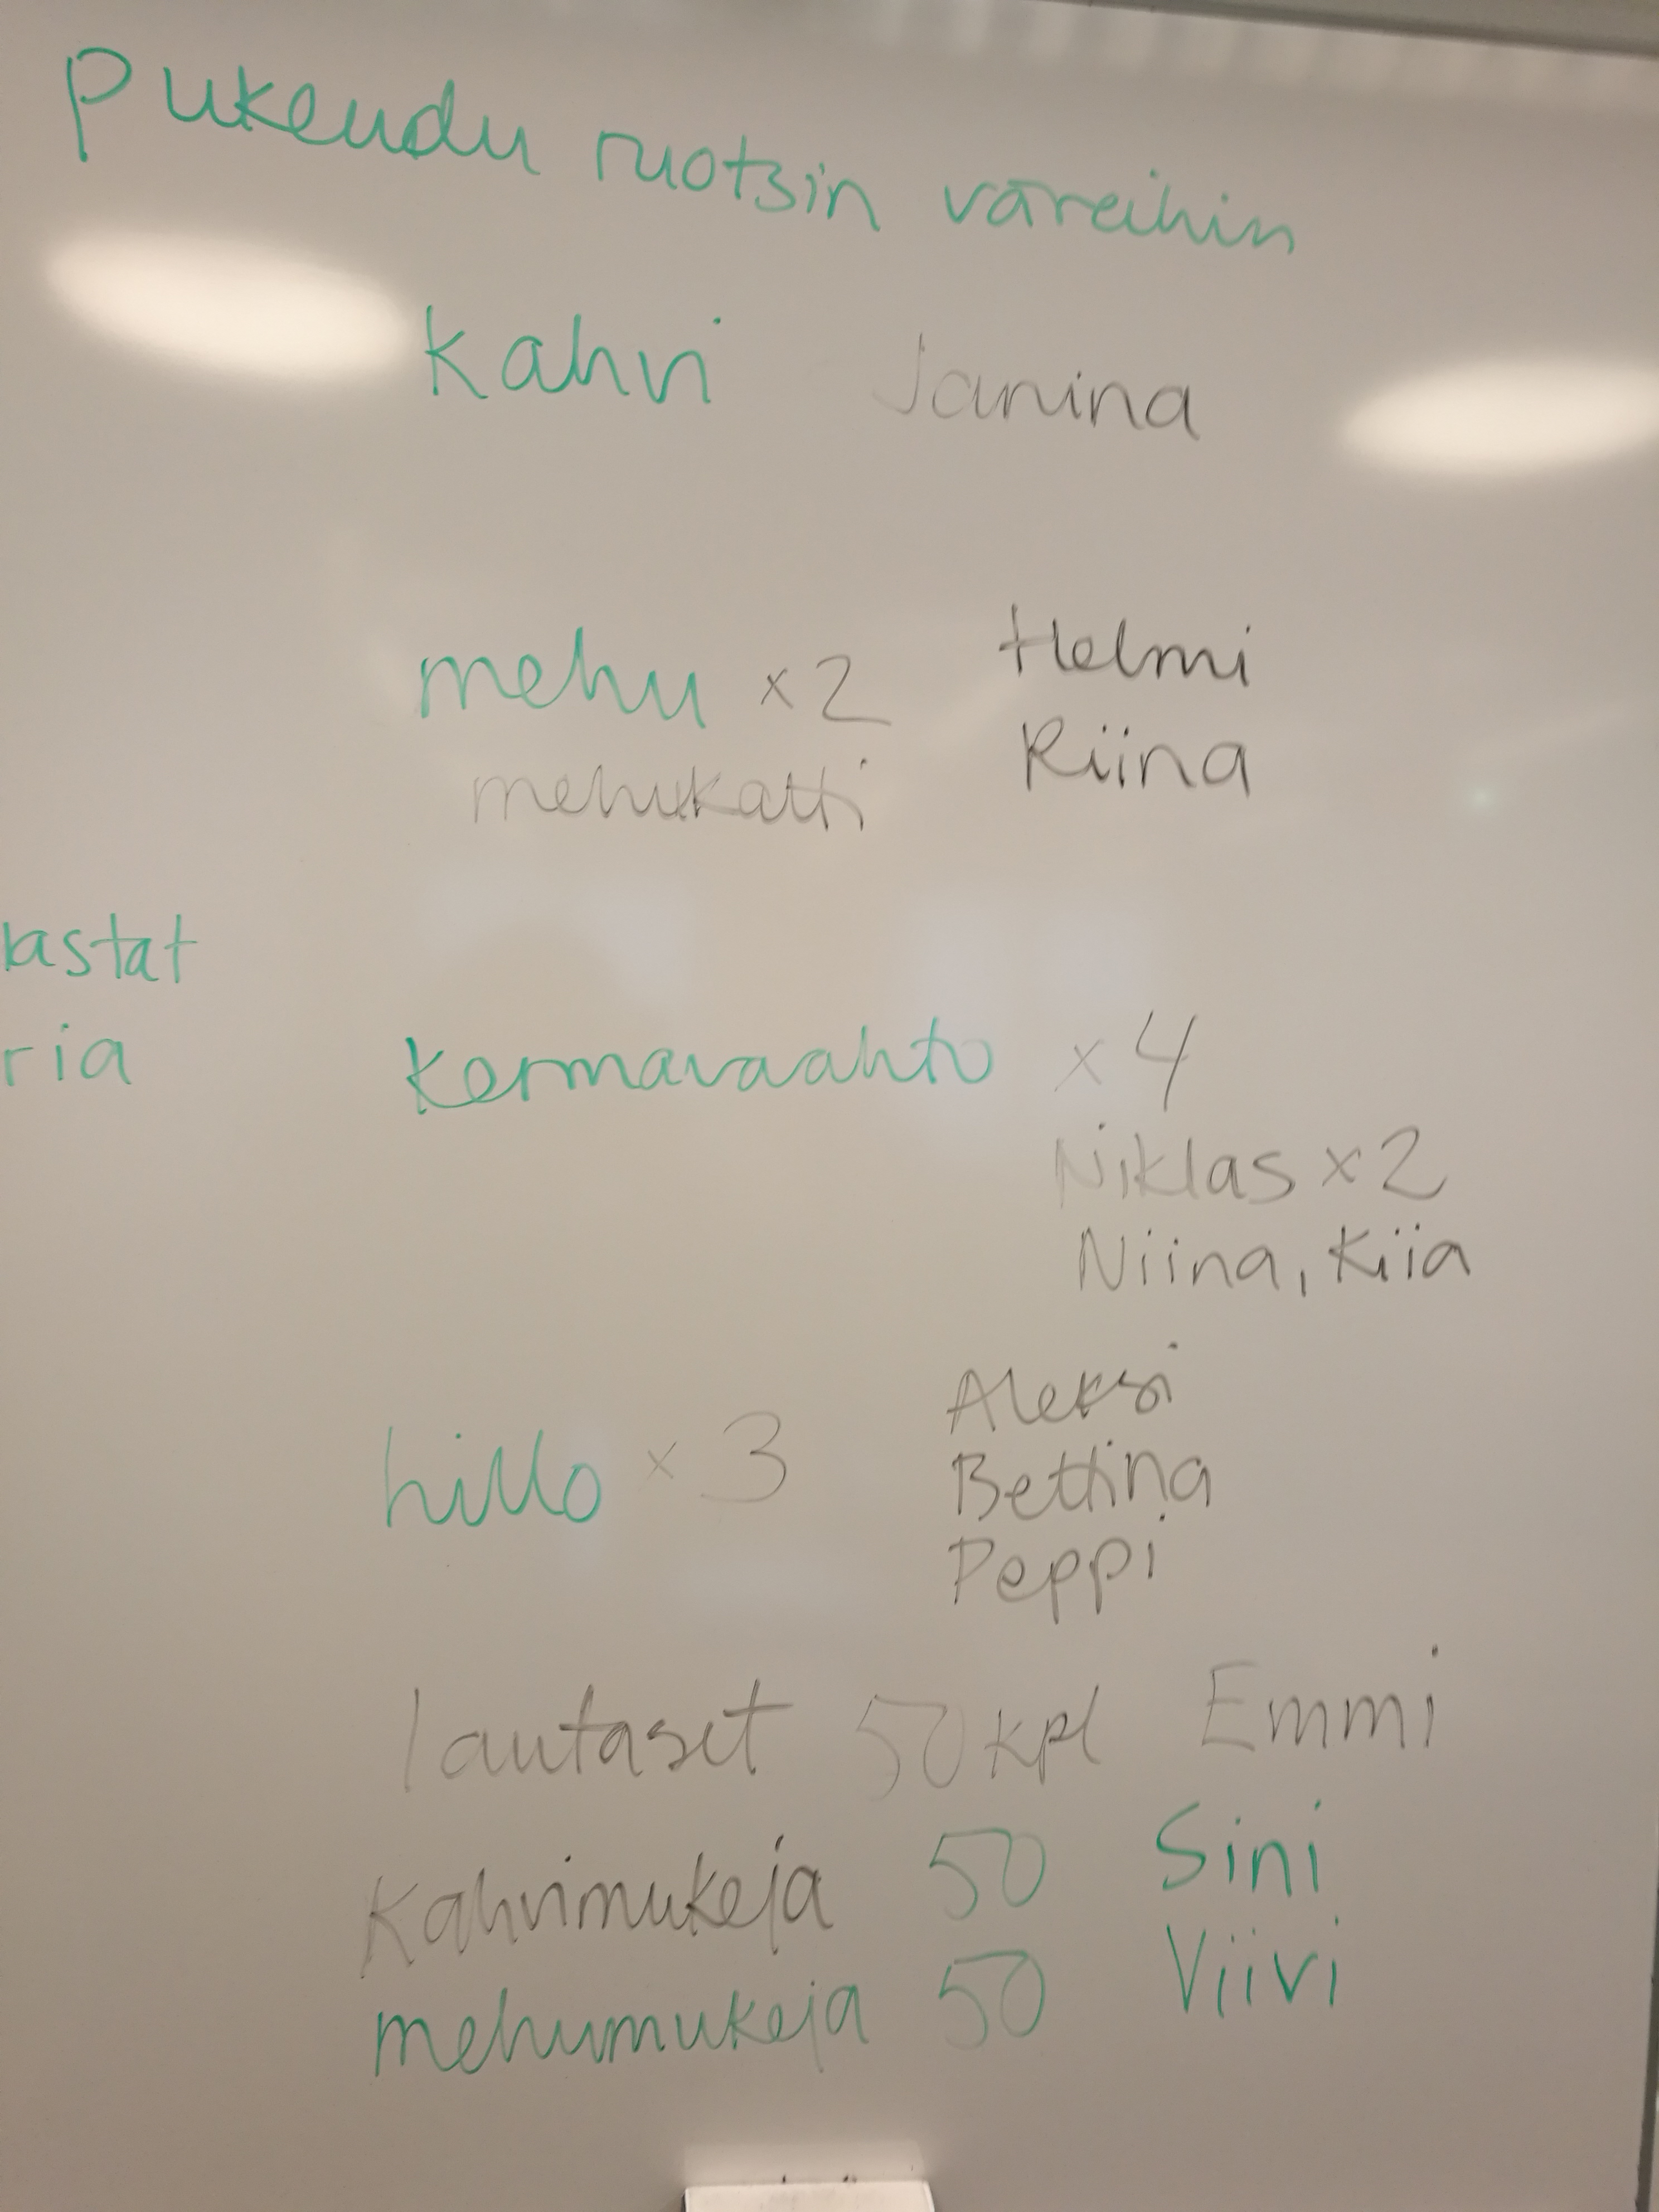 Pukeudu ruotsin väreihin
Kahvi Janina
mehu x2 Helmi
mehukatti Riina
lastat
ria
Kermavaahto x 4
Niklas x2
Niina, Kiia
hillo x 3 Aleksi
Bettina
Peppi
lautaset 50 kpl Emmi
Kahvimukeja 50 Sini
mehumukeja 50 Viivi